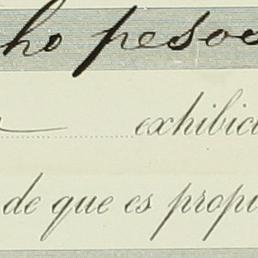 ho pesos
exhibid
de que es propi